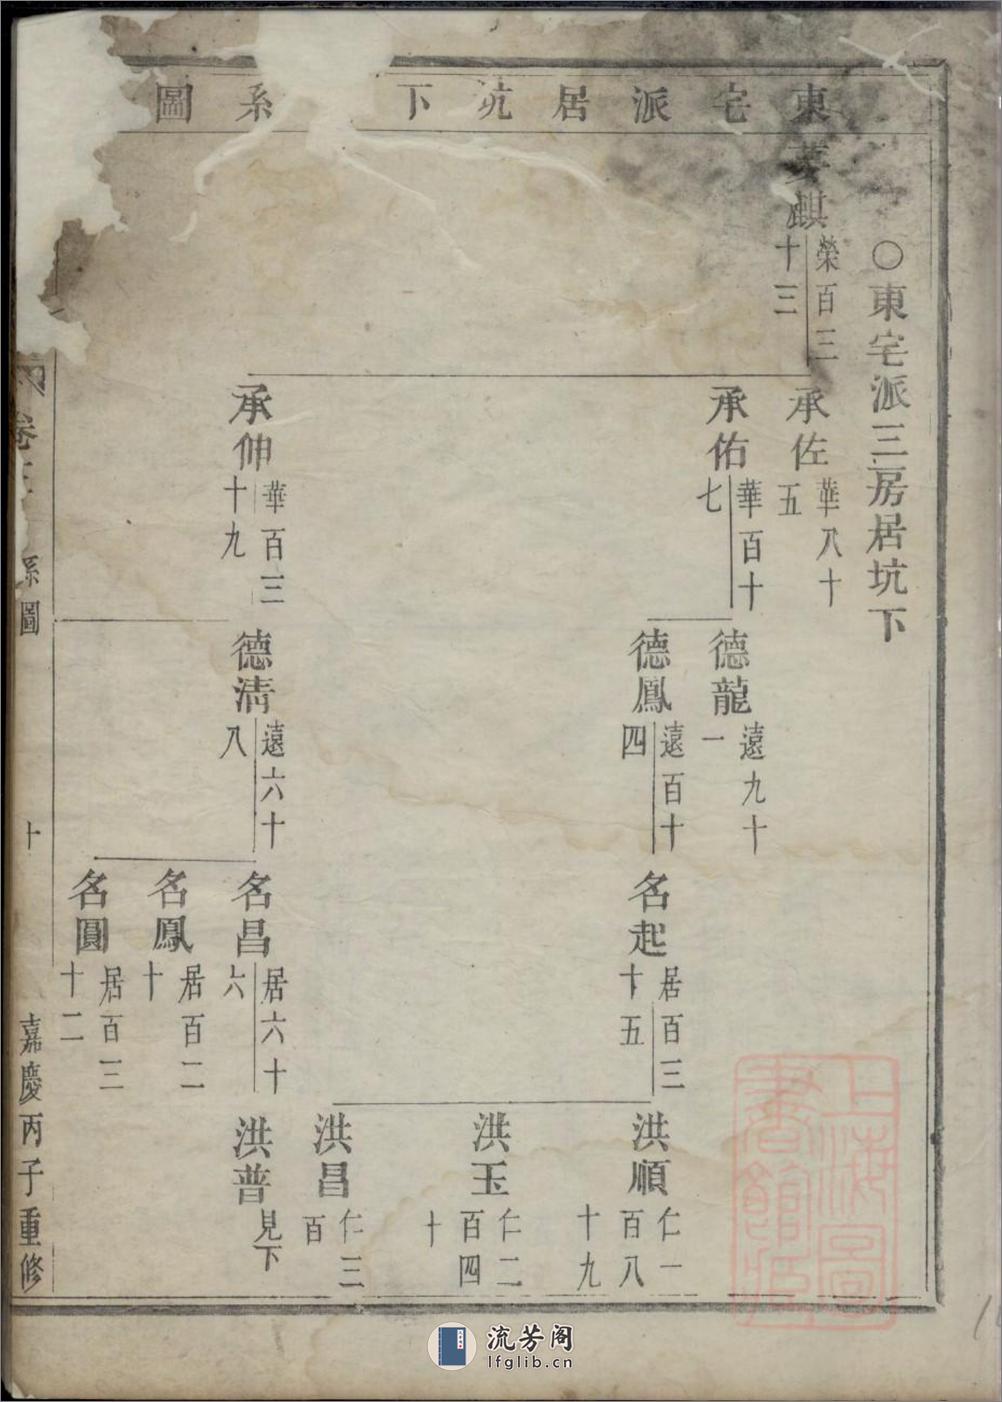 東宅派居坑下系圖
○東宅派三房居坑下
麒
榮百三
十三
承佐
華八十
五
承佑
華百十
七
承伸
華百三
十九
德龍
遠九十
一
德鳳
遠百十
四
德清
遠六十
八
名起
居百三
十五
名昌
居六十
六
名鳳
居百二
十
名圓
居百三
十二
洪順
仁一
百八
十九
洪玉
仁二
百四
十
洪昌
仁三
百
洪普
見下
卷
系圖
十
嘉慶丙子重修
上海圖
書館藏
流芳阁
lfglib.cn